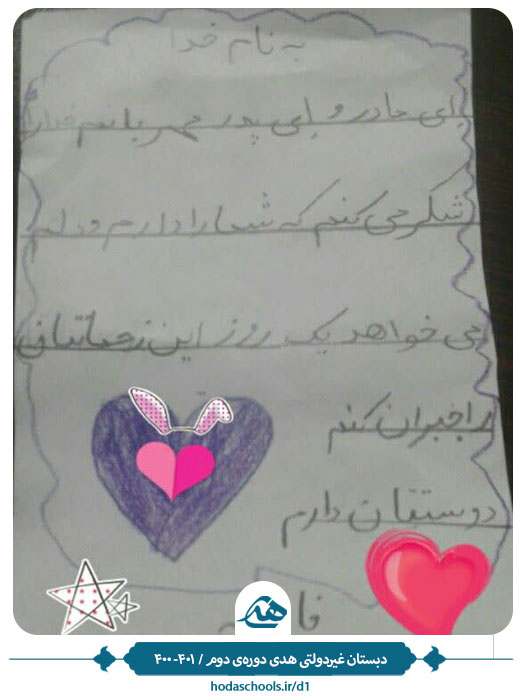 به نام خدا
ای مادر و ای پدر مهربانم خدارا
شکر می کنم که شما را دارم و دلم
می خواهد یک روز این زحماتتان
را جبران کنم
دوستتان دارم
هدی
دبستان غیردولتی هدی دوره‌ی دوم / ۴۰۱-۴۰۰
hodaschools.ir/d1